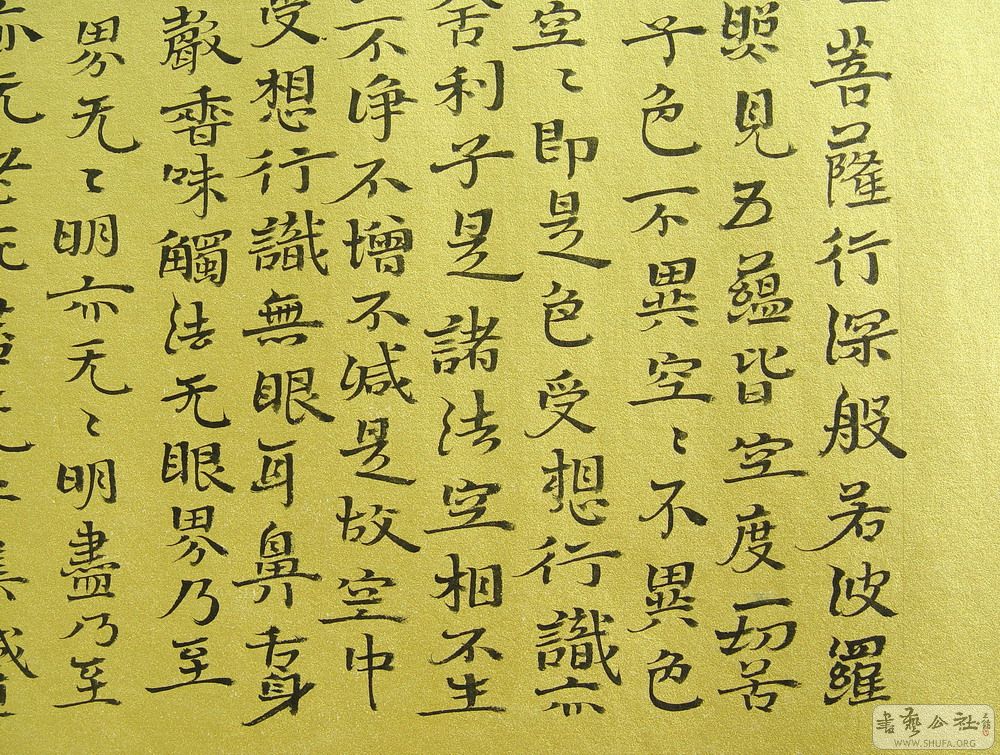 菩薩行深般若波羅
照見五蘊皆空度一切苦
子色不異空〻不異色
空〻即是色受想行識亦
舍利子是諸法空相不生
不净不增不減是故空中
受想行識無眼耳鼻舌身
聲香味觸法无眼界乃至
界无〻明亦无〻明盡乃至
書藝公社
WWW.SHUFA.ORG